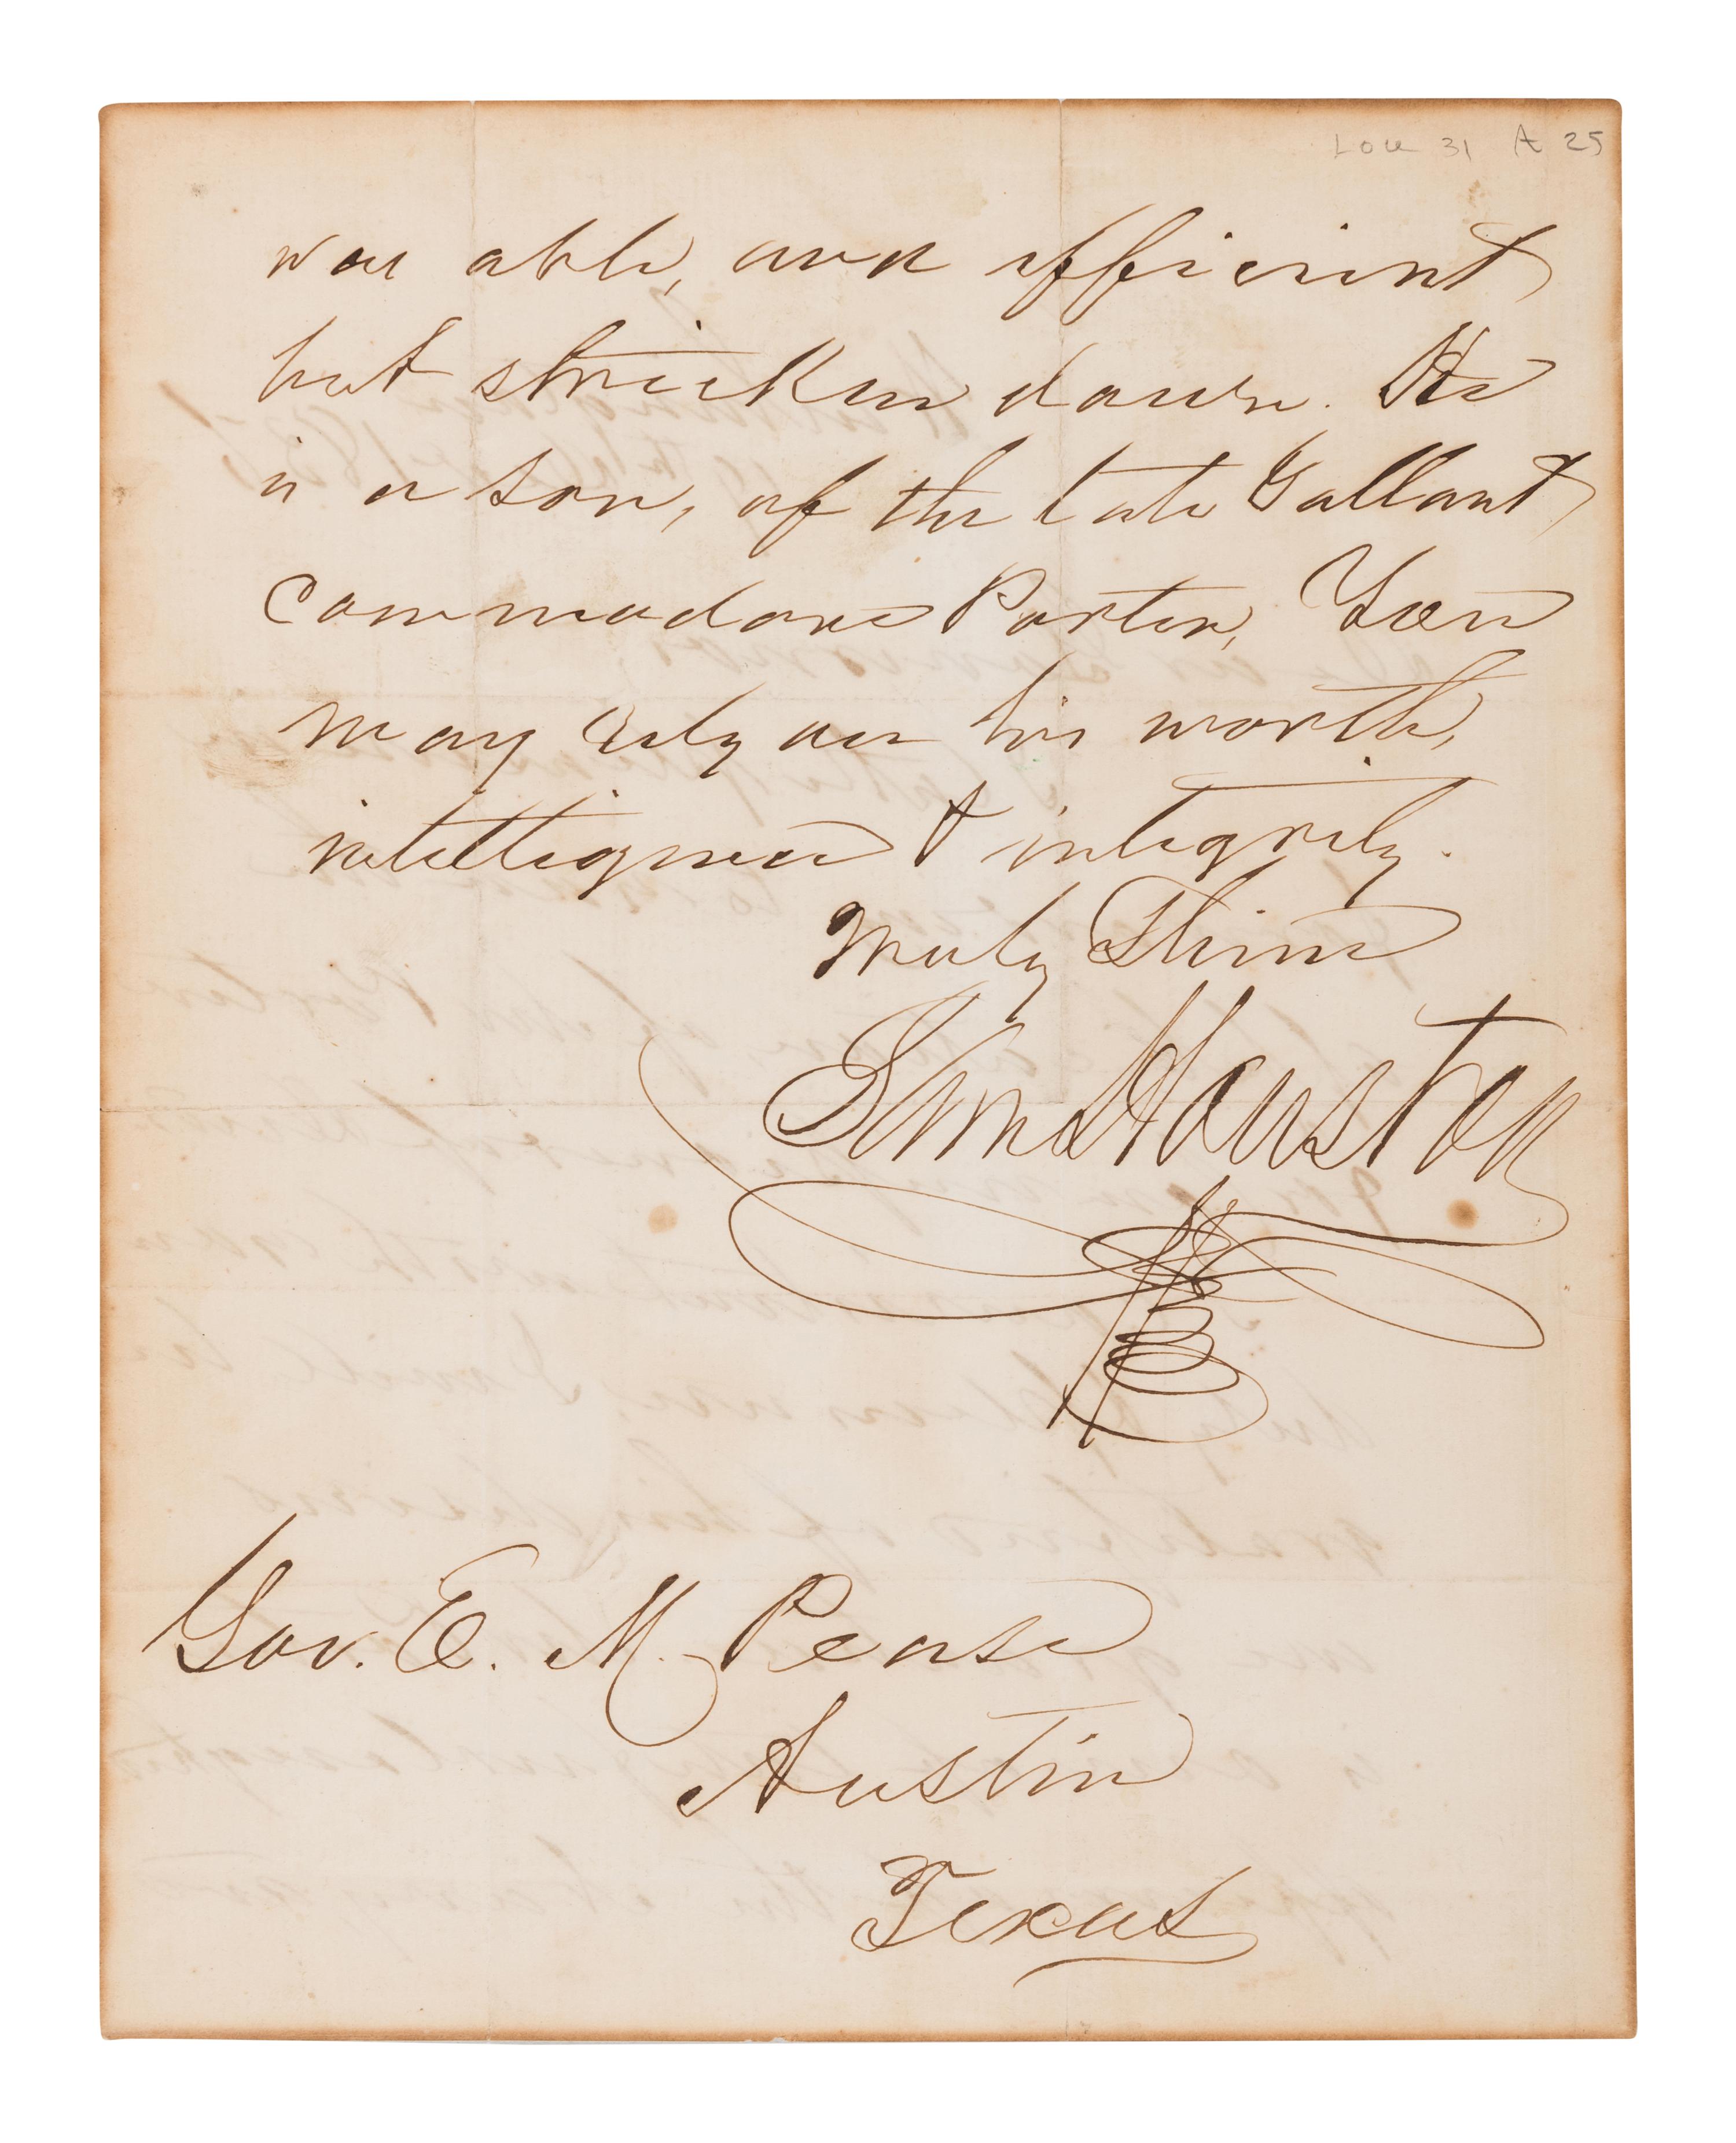 Lou 31 A 25
was able, and efficient
but stricken down. He
is a son, of the late Gallant
Commodore Porter, You
may rely on his worth,
intelligence & integrity.
Truly Thine
Sam Houston
Gov. E. M. Pease
Austin
Texas